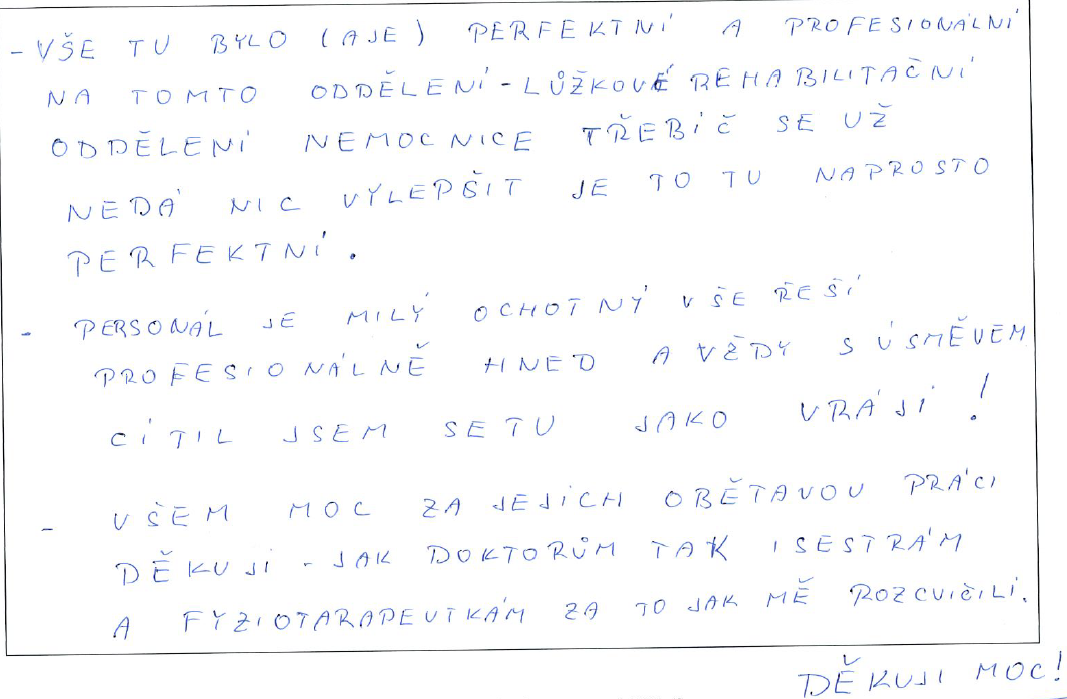 - VŠE TU BYLO (A JE) PERFEKTNÍ A PROFESIONÁLNÍ
NA TOMTO ODDĚLENÍ - LŮŽKOVÉ REHABILITAČNÍ
ODDĚLENÍ NEMOCNICE TŘEBÍČ SE UŽ
NEDÁ NIC VYLEPŠIT JE TO TU NAPROSTO
PERFEKTNÍ.
- PERSONÁL JE MILÝ OCHOTNÝ VŠE ŘEŠÍ
PROFESIONÁLNĚ HNED A VŽDY S ÚSMĚVEM
CÍTIL JSEM SE TU JAKO V RÁJI!
- VŠEM MOC ZA JEJICH OBĚTAVOU PRÁCI
DĚKUJI - JAK DOKTORŮM TAK I SESTRÁM
A FYZIOTARAPEUTKÁM ZA TO JAK MĚ ROZCVIČILI.
DĚKUJI MOC!